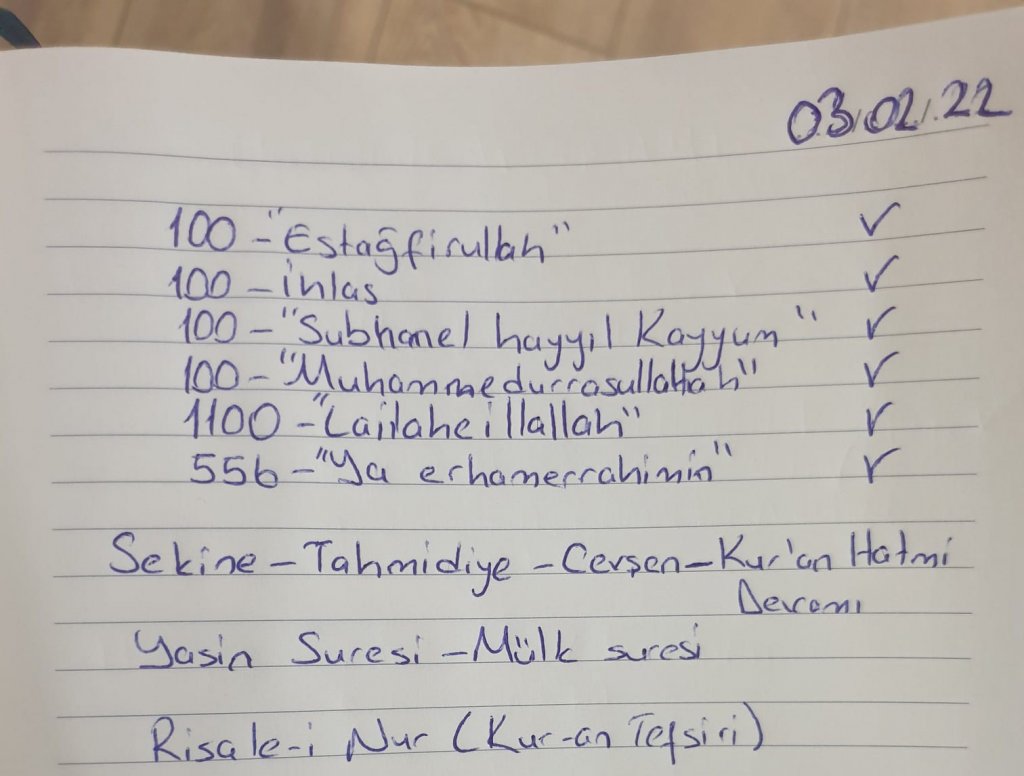 03.02.22
100 - "Estağfirullah" ✓
100 - ihlas ✓
100 - "Subhanel hayyıl Kayyum" ✓
100 - "Muhammedurrasullallah" ✓
1100 - "Lailaheillallah" ✓
556 - "Ya erhamerrahimin" ✓
Sekine - Tahmidiye - Cevşen - Kur'an Hatmi
Devamı
Yasin Suresi - Mülk suresi
Risale-i Nur (Kur-an Tefsiri)